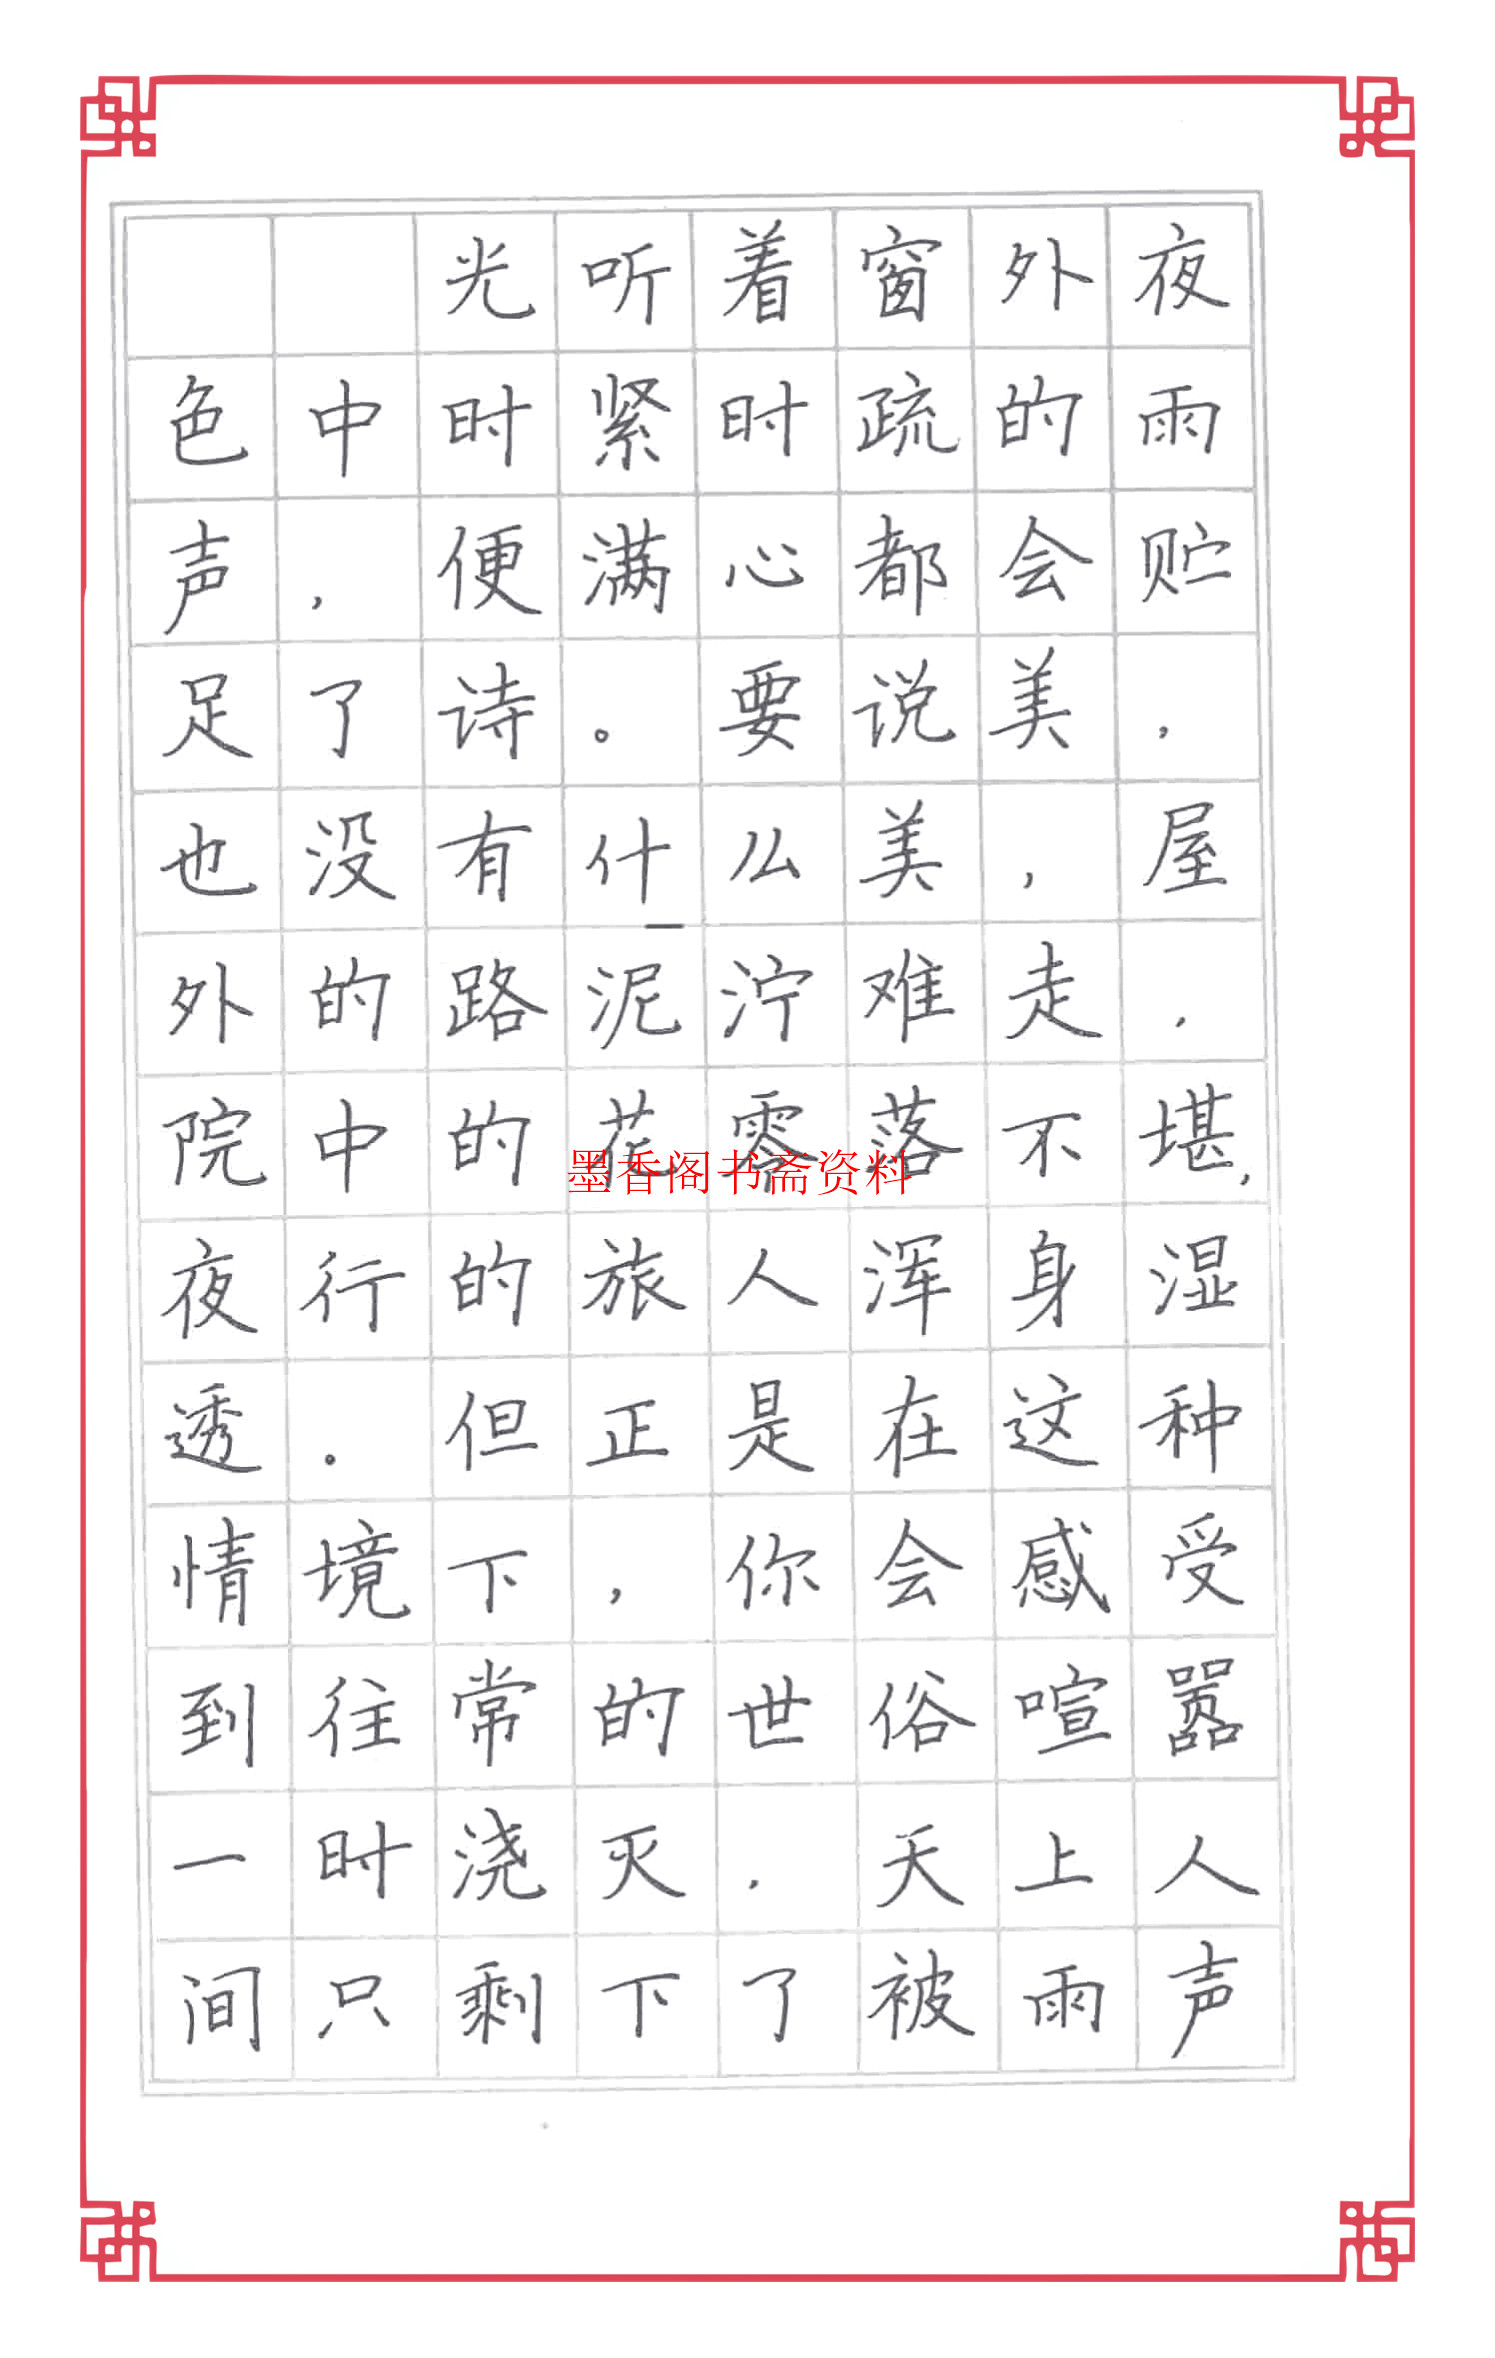 光听着窗外夜
色中时紧时疏的雨
声，便满心都会贮
足了诗。要说美，
也没有什么美，屋
外的路泥泞难走，
院中的花零落不堪，
墨香阁书斋资料
夜行的旅人浑身湿
透。但正是在这种
情境下，你会感受
到往常的世俗喧嚣
一时浇灭，天上人
间只剩下了被雨声